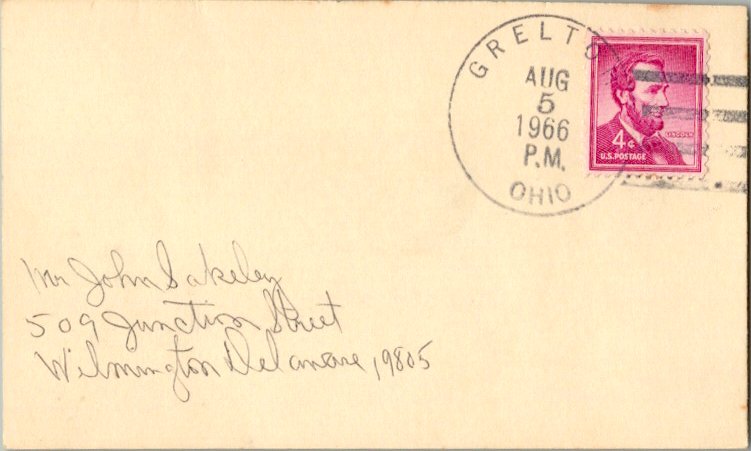 GRELTO
AUG
5
1966
P.M.
OHIO
LINCOLN
4¢
U.S. POSTAGE
Mr John Sakeley
509 Junction Street
Wilmington Delaware, 19805